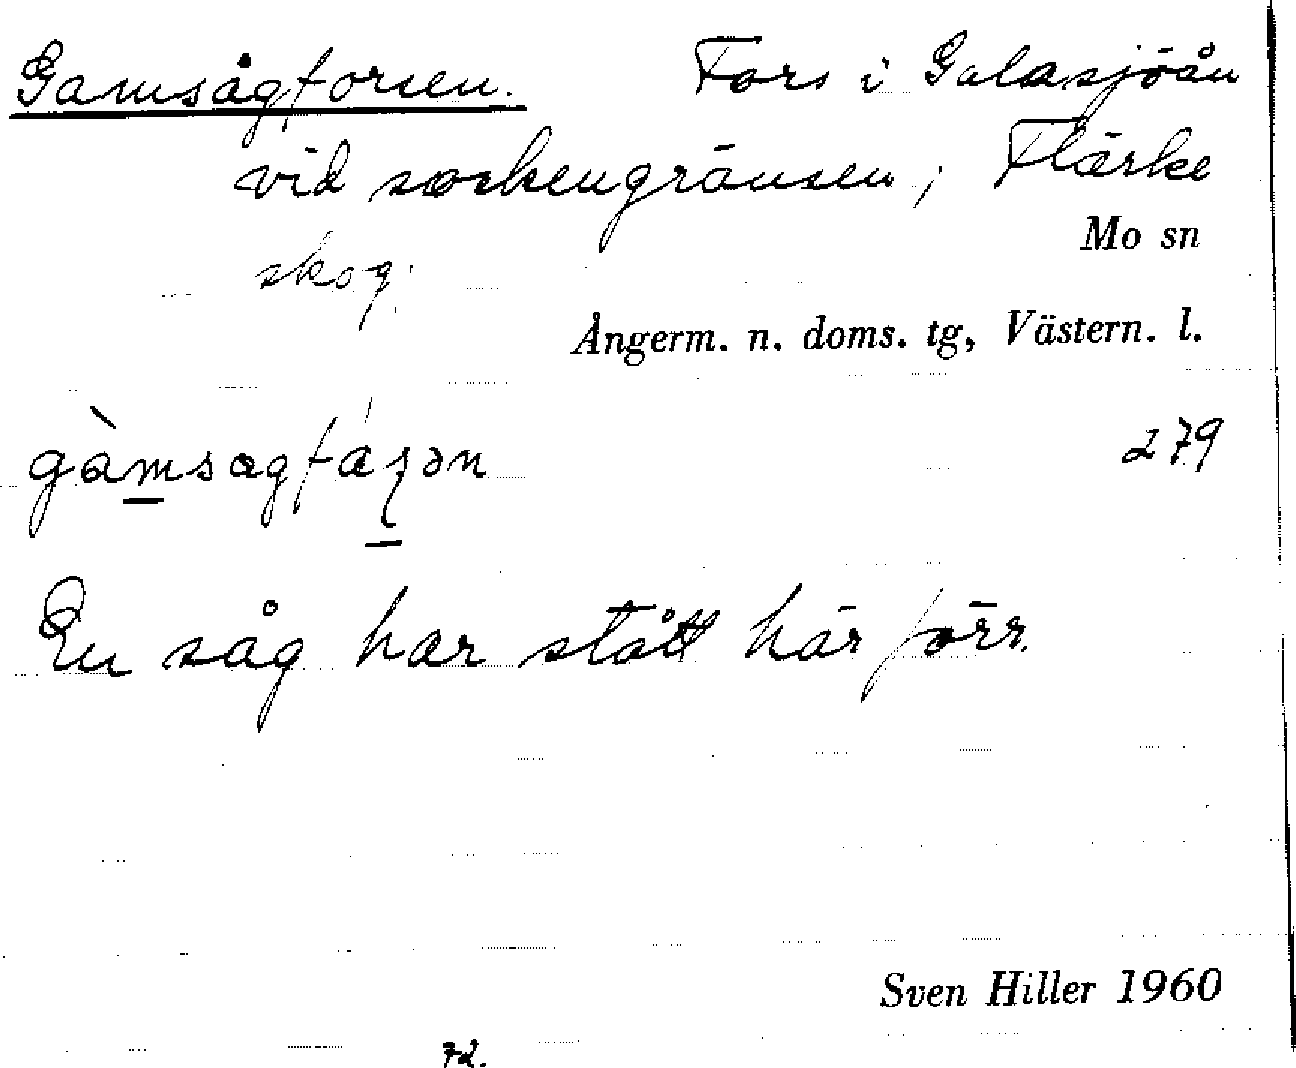 Gamsågforsen. Fors i Galasjöån
vid sockengränsen, Flärke
Mo sn
skog.
Ångerm. n. doms. tg, Västern. l.
279
En såg har stått här förr.
Sven Hiller 1960
72.